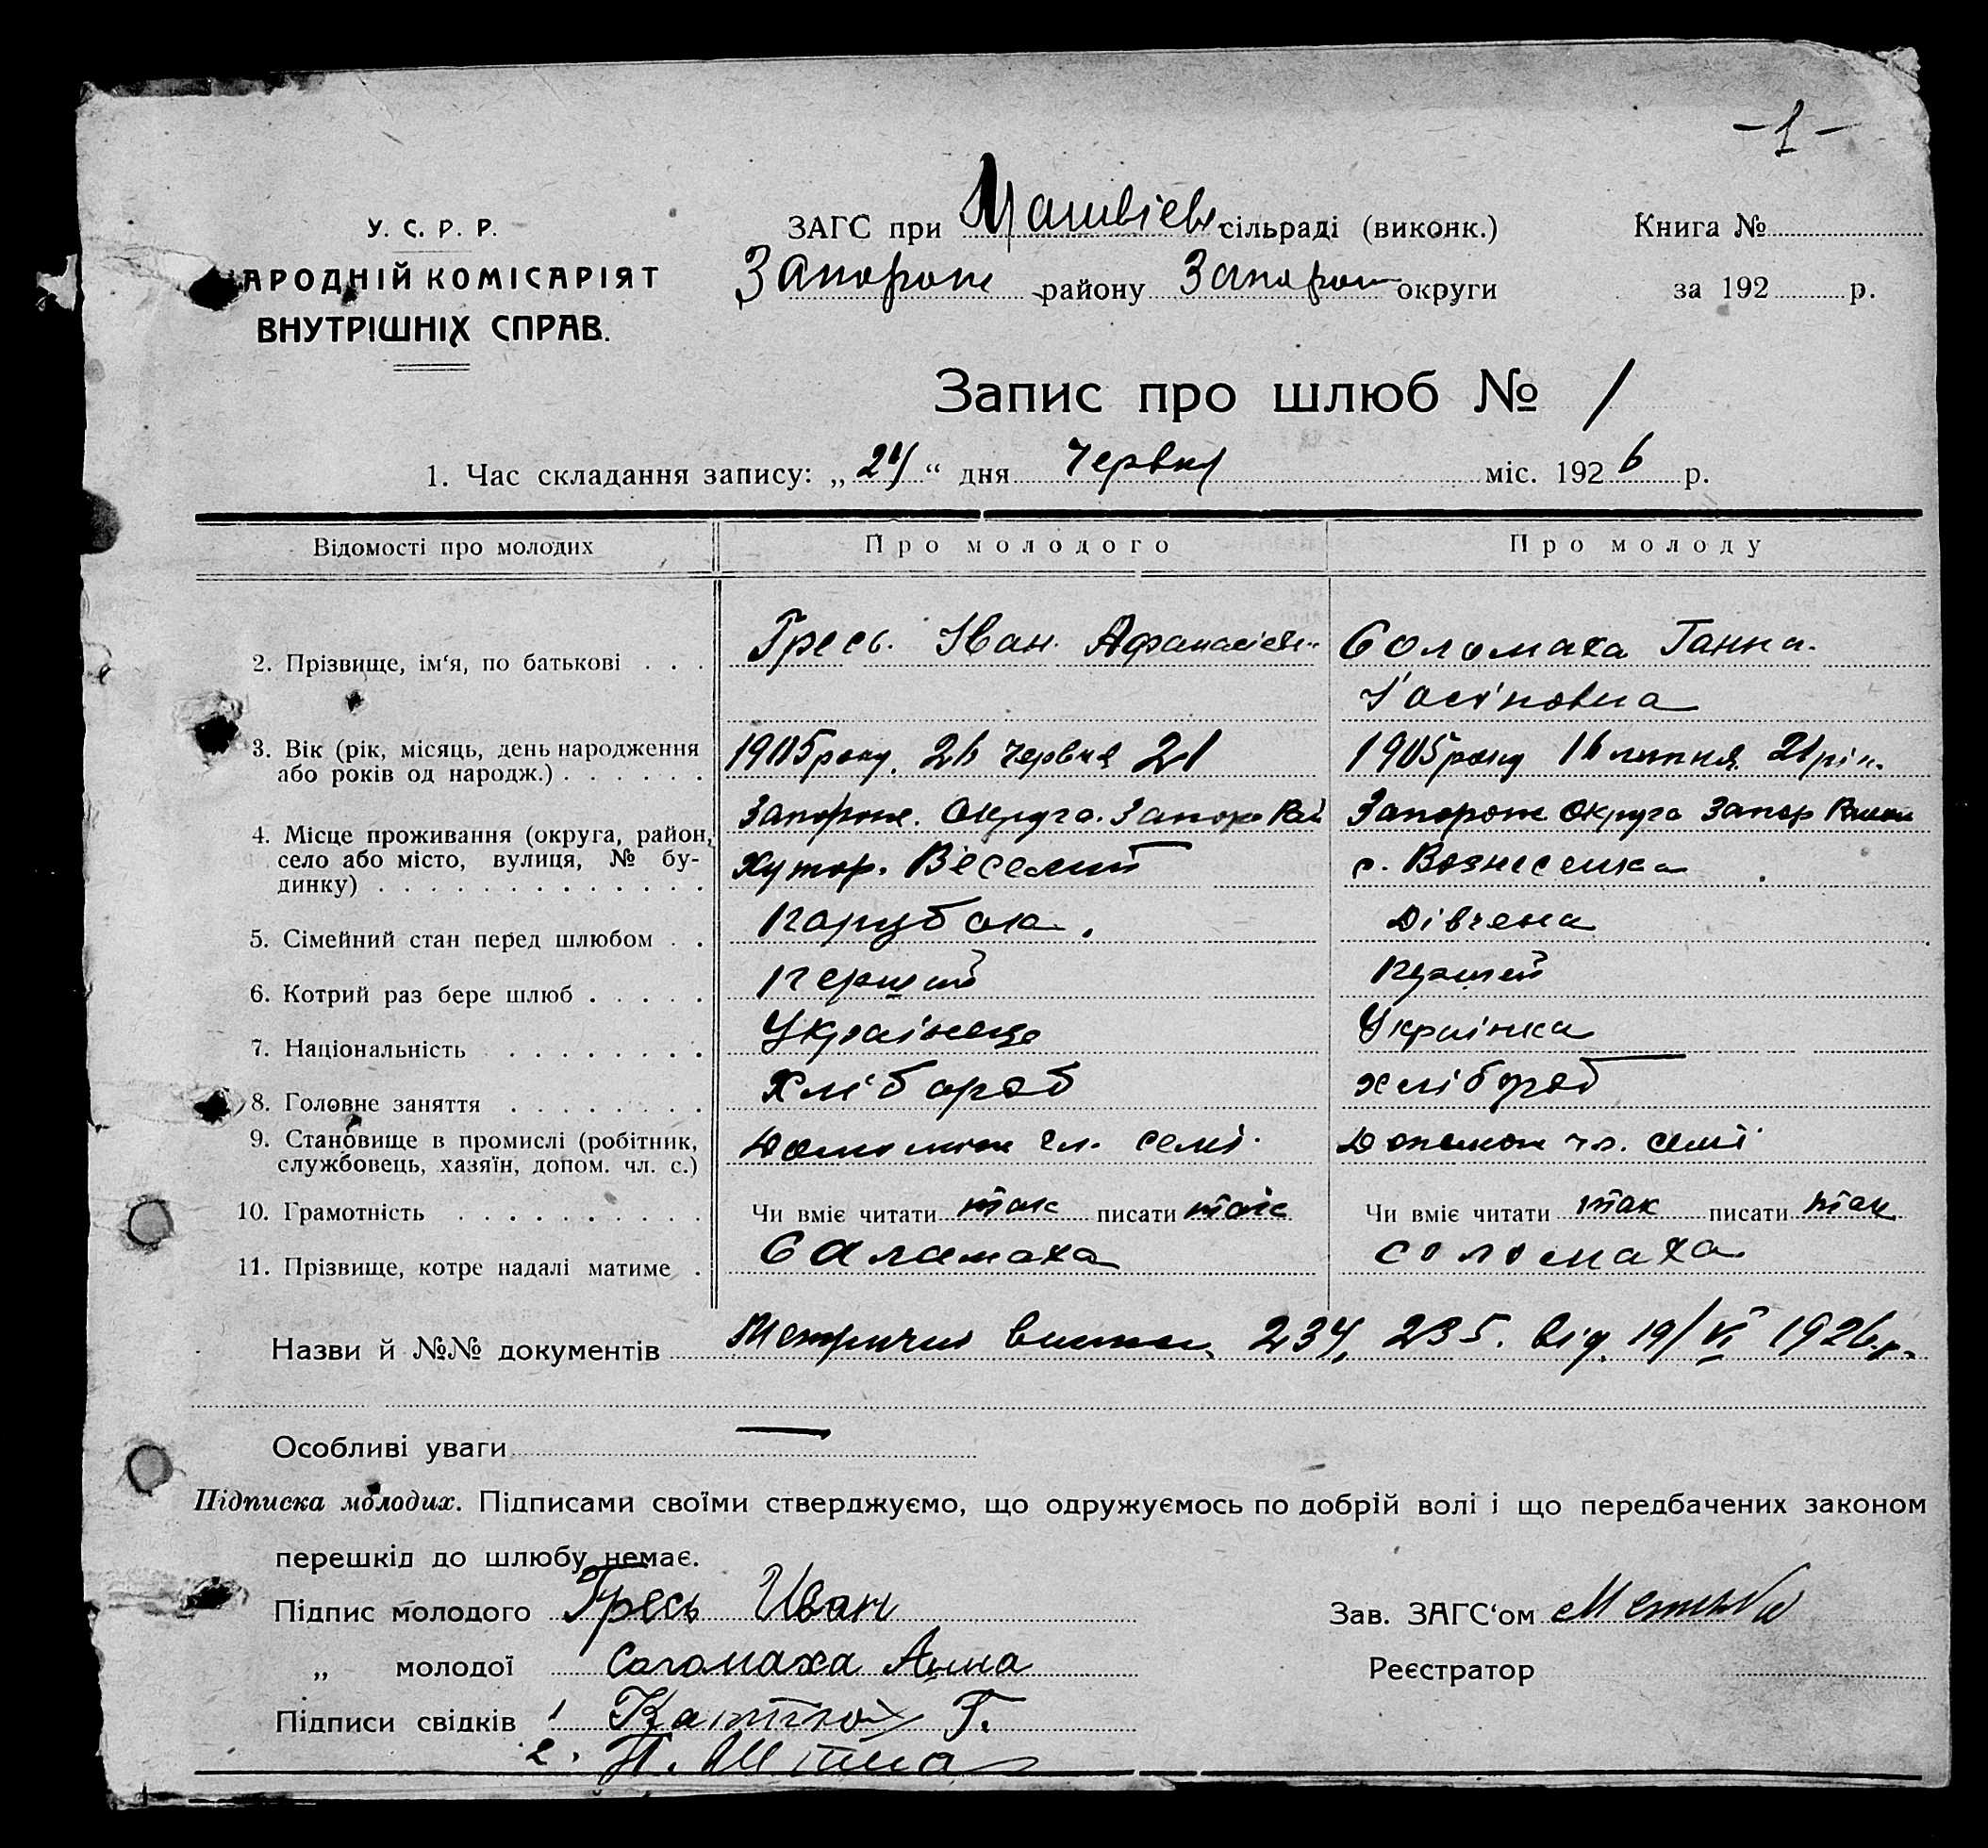 -1-
У. С. Р. Р.
АРОДНІЙ КОМІСАРІЯТ
ВНУТРІШНІХ СПРАВ.
ЗАГС при Матвіев. сільраді (виконк.)
Запорож району Запорож округи
Книга №
за 192 р.
Запис про шлюб № 1
1. Час складання запису: „24“ дня Червня міс. 1926 р.
Відомості про молодих Про молодого Про молоду
2. Прізвище, ім‘я, по батькові . . . Гресь. Іван. Афанасіев. Соломаха Ганна.
Йосіповна
3. Вік (рік, місяць, день народження 1905 року. 26 червня 21 1905 року 16 липня 21 рік.
або років од народж.) . . . . . .
Запорож. Округа. Запорож Рай Запорож Округа Запор Район
4. Місце проживання (округа, район,
село або місто, вулиця, № бу- Хутор. Веселий с. Вознесенка
динку) . . . . . . . . . . . . .
5. Сімейний стан перед шлюбом . . Парубок. Дівчена
6. Котрий раз бере шлюб . . . . . Перший Перший
7. Національність . . . . . . . . Українець Українка
8. Головне заняття . . . . . . . . Хлібороб хлібороб
9. Становище в промислі (робітник, Допомож чл. семі. Допомож чл. семі
службовець, хазяїн, допом. чл. с.)
10. Грамотність . . . . . . . . . . Чи вміє читати так писати так Чи вміє читати так писати так
11. Прізвище, котре надалі матиме . Саламаха Соломаха
Назви й №№ документів Метричні 234, 235. від 19/VI 1926 р.
Особливі уваги —
Підписка молодих. Підписами своїми стверджуємо, що одружуємось по добрій волі і що передбачених законом
перешкід до шлюбу немає.
Підпис молодого Гресь Иван Зав. ЗАГС‘ом
„ молодої Соломаха Анна Реєстратор
Підписи свідків 1 Г.
2.